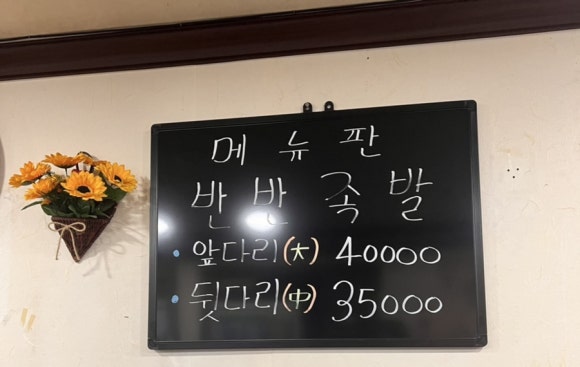 메뉴판
반반족발
• 앞다리(大) 40000
• 뒷다리(中) 35000